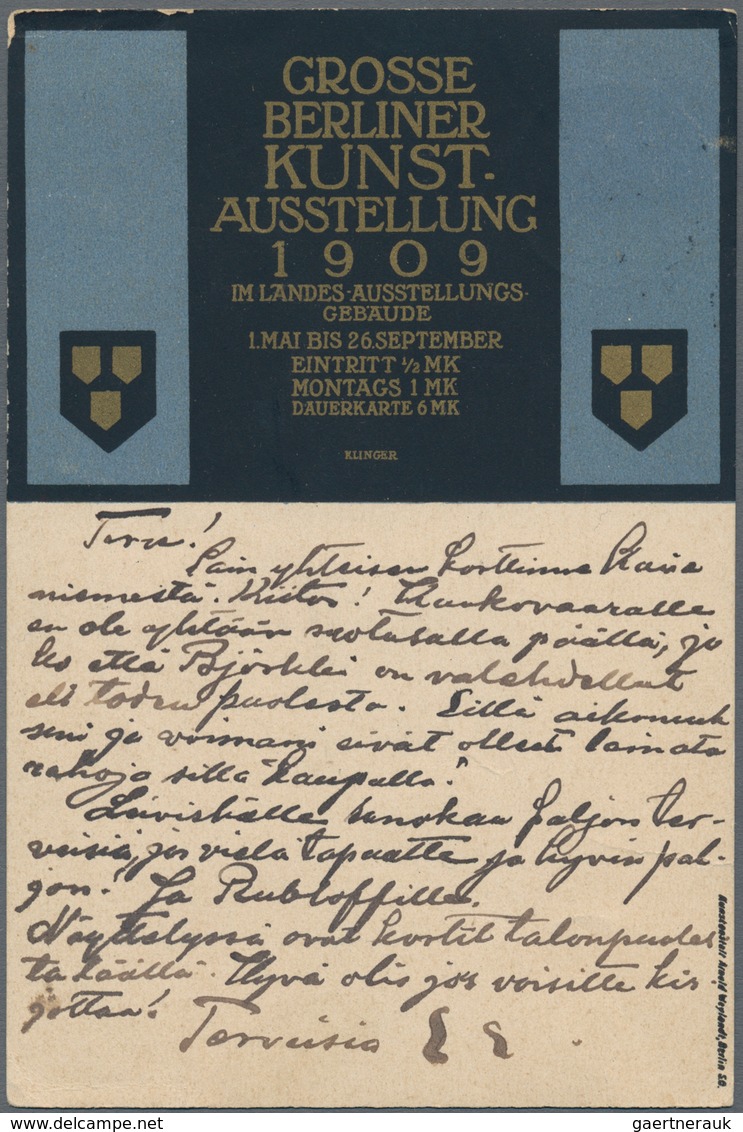 GROSSE
BERLINER
KUNST-
AUSSTELLUNG
1909
IM LANDES-AUSSTELLUNGS-
GEBÄUDE
1. MAI BIS 26. SEPTEMBER
EINTRITT ½ MK
MONTAGS 1 MK
DAUERKARTE 6 MK
KLINGER
Terve!
Sain yhteisen korttinne
niemestä. Kiitos!
en ole yhtään päällä, jo
ko että Björklei on valehdellut
eli toden puolesta. Sillä
seni ja voimani eivät olleet lainata
rahoja sillä kaupalla!
sanokaa paljon ter-
veisiä, jos vielä tapaatte ja hyvin pal-
jon! Ja Rubloffille.
Näyttelyssä ovat kortit
täällä. Hyvä olis jos voisitte kir-
jottaa!
Terveisiä
Kunstanstalt Arnold Weylandt, Berlin SO.
gaertnerauk